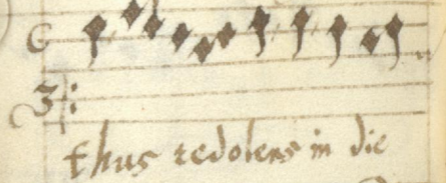 thus redolens in die